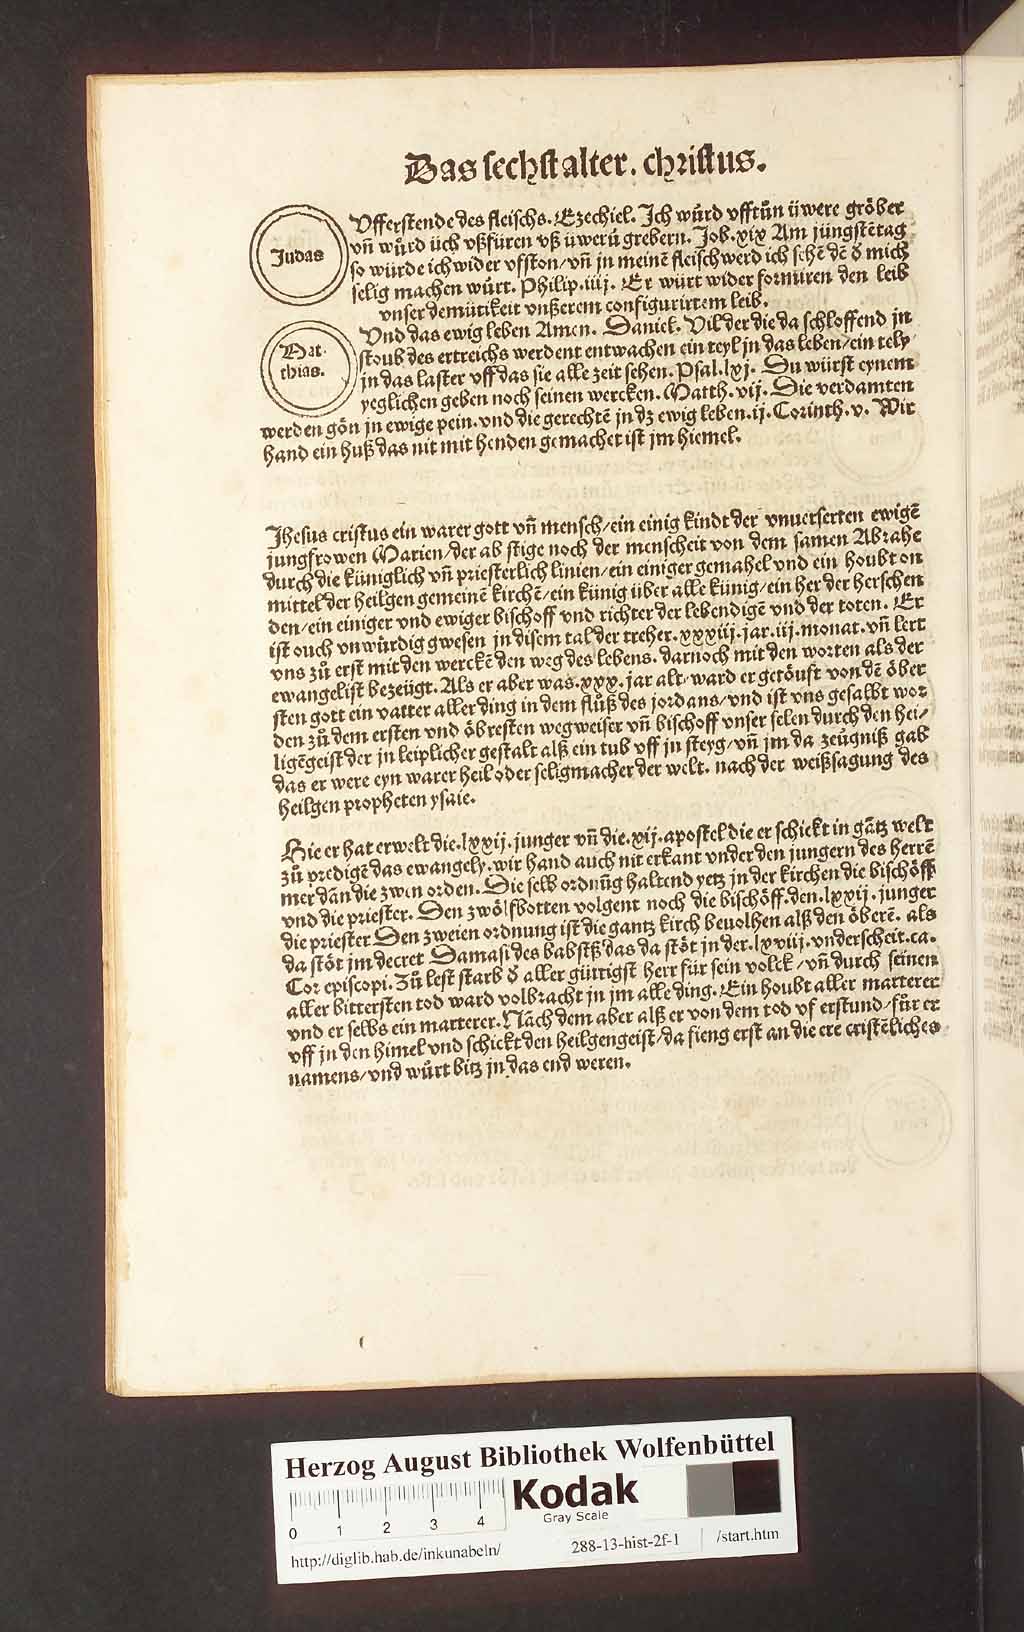 Das sechst alter. christus.
Judas
Vfferstende des fleischs. Ezechiel. Jch würd vfftůn üwere gröber
vñ würd üch vßfüren vß üwerũ grebern. Job. xix Am jüngstẽ tag
so würde ich wider vfston/ vñ jn meinẽ fleisch werd ich sehẽ dẽ d̕ mich
selig machen würt. Philip. iij. Er würt wider formüren den leib
vnser demütikeit vnßerem configurirtem leib.
Mat-
thias.
Vnd das ewig leben Amen. Daniel. Vil der die da schloffend jn
stoub des ertreichs werdent entwachen ein teyl jn das leben/ ein tely
jn das laster vff das sie alle zeit sehen. Psal. lxj. Du würst eynem
yeglichen geben noch seinen wercken. Matth. vij. Die verdamten
werden gön jn ewige pein. vnd die gerechtẽ jn dz ewig leben. ij. Corinth. v. Wir
hand ein huß das nit mit henden gemachet ist jm hiemel.
Jhesus cristus ein warer gott vñ mensch/ ein einig kindt der vnuerserten ewigẽ
jungfrowen Marien/ der ab stige noch der menscheit von dem samen Abrahe
durch die küniglich vñ priesterlich linien/ ein einiger gemahel vnd ein houbt on
mittel der heilgen gemeinẽ kirchẽ/ ein künig über alle künig/ ein her der herschen
den/ ein einiger vnd ewiger bischoff vnd richter der lebendigẽ vnd der toten. Er
ist ouch vnwürdig gwesen jn disem tal der treher. xxxiij. jar. iij. monat. vñ lert
vns zů erst mit den werckẽ den weg des lebens. darnoch mit den worten als der
ewangelist bezeügt. Als er aber was. xxx. jar alt/ ward er getöuft von dẽ öber
sten gott ein vatter aller ding in dem flůß des jordans/ vnd ist vns gesalbt wor
den zů dem ersten vnd öbresten wegweiser vñ bischoff vnser selen durch den hei/
ligẽ geist der jn leiplicher gestalt alß ein tub vff jn steyg/ vñ jm da zeügniß gab
das er were eyn warer heil oder seligmacher der welt. nach der weißsagung des
heilgen propheten ysaie.
Hie er hat erwelt die. lxxij. junger vñ die. xij. apostel die er schickt in gãtz welt
zů predigẽ das ewangely. wir hand auch nit erkant vnder den jungern des herrẽ
mer dãn die zwen orden. Die selb ordnũg haltend yetz jn der kirchen die bischöff
vnd die priester. Den zwölfbotten volgent noch die bischöff. den. lxxij. junger
die priester Den zweien ordnung ist die gantz kirch beuolhen alß den öberẽ. als
da stöt jm decret Damasi des babsts/ das da stöt jn der. lxviij. vnderscheit. ca.
Cor episcopi. Zů lest starb d̕ aller güttigst herr für sein volck/ vñ durch seinen
aller bittersten tod ward volbracht jn jm alle ding. Ein houbt aller marterer
vnd er selbs ein marterer. Nãch dem aber alß er von dem tod vf erstund/ fůr er
vff jn den himel vnd schickt den heilgengeist/ da fieng erst an die ere cristẽliches
namens/ vnd würt bitz jn das end weren.
Herzog August Bibliothek Wolfenbüttel
Kodak
Gray Scale
0 1 2 3 4
http://diglib.hab.de/inkunabeln/ 288-13-hist-2f-1 /start.htm